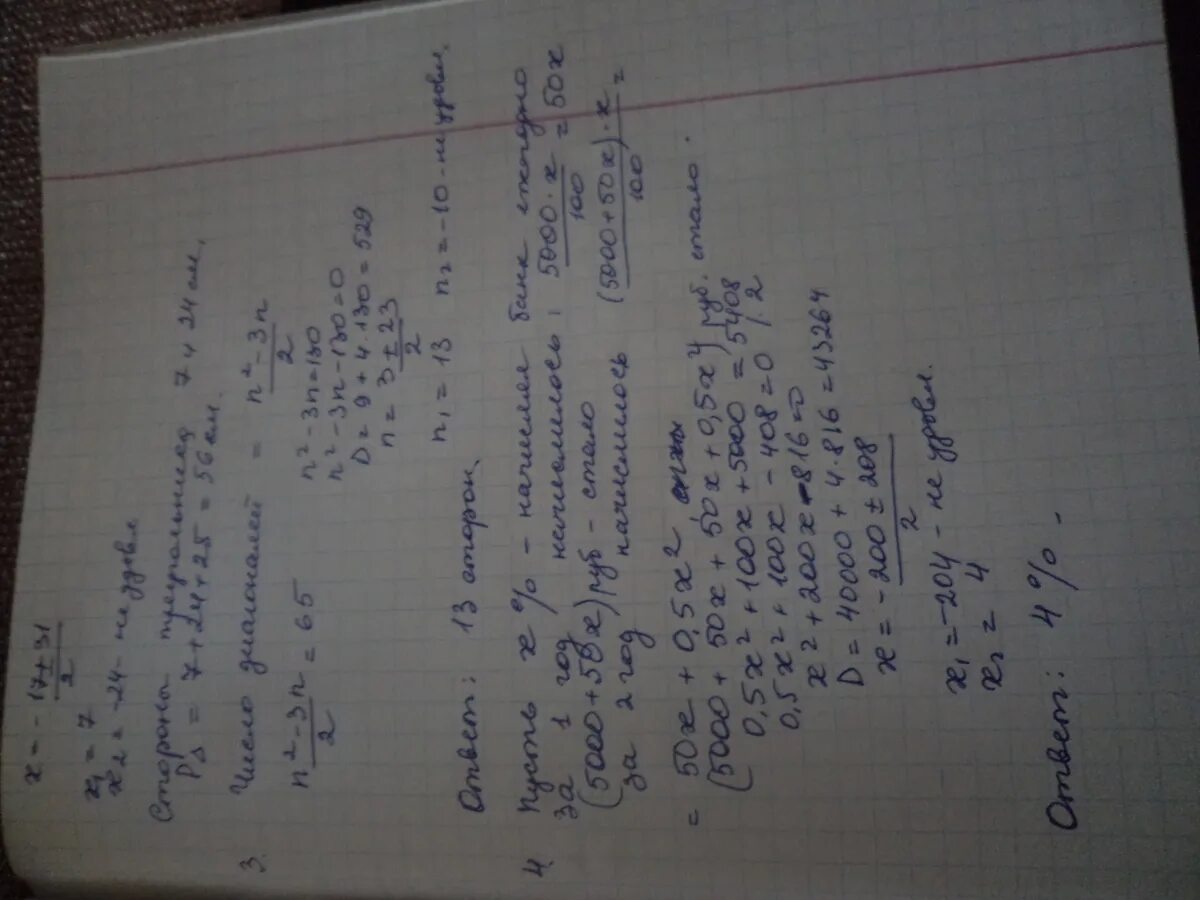 x = -17±31/2
x₁ = 7
x₂ = -24 - не удовл.
Стороны треугольника 7 и 24 см,
P△ = 7+24+25 = 56 см.
3. Число диагоналей = n²-3n/2
n²-3n/2 = 65
n²-3n=130
n²-3n-130=0
D = 9+4·130=529
n = 3±23/2
n₁ = 13 n₂ = -10 - не удовл.
Ответ: 13 сторон
4. Пусть x % - начислял банк ежегодно
за 1 год начислилось: 5000·x/100 = 50x
(5000+50x) руб - стало
за 2 год начислилось (5000+50x)·x/100 =
= 50x + 0,5x²
(5000+50x+50x+0,5x²) руб. стало.
0,5x²+100x+5000=5408
0,5x²+100x-408=0 /·2
x²+200x-816=0
D=40000+4·816=43264
x = -200±208/2
x₁=-204 - не удовл.
x₂= 4
Ответ: 4%.